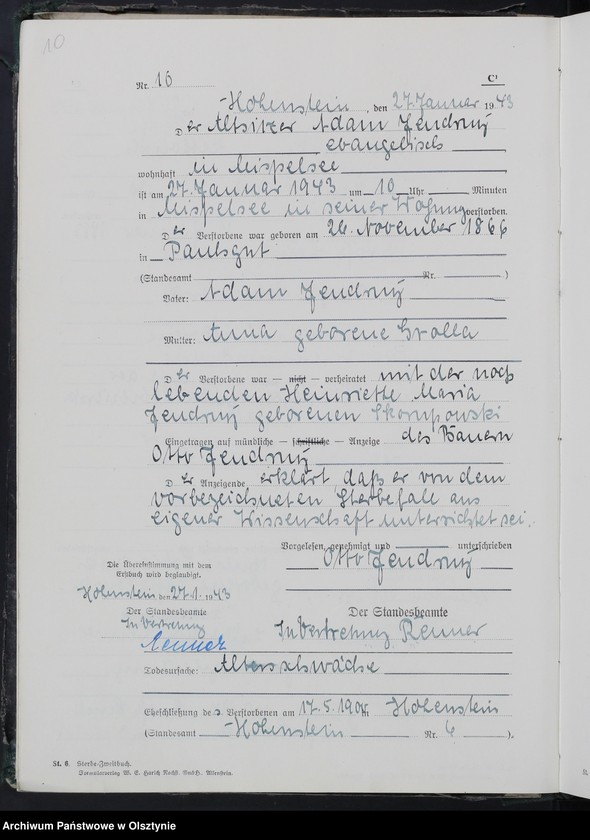 10
Nr. 16
C¹
Hohenstein, den 27. Januar 1943
Der Altsitzer Adam Jendrny
evangelisch
wohnhaft in Mispelsee
ist am 27. Januar 1943 um 10 Uhr Minuten
in Mispelsee in seiner Wohnung verstorben.
Der Verstorbene war geboren am 26. November 1866
in Paulsgut
(Standesamt Nr. )
Vater: Adam Jendrny
Mutter: Anna geborene
Der Verstorbene war — nicht — verheiratet mit der noch
lebenden Henriette Maria
Jendrny geborenen
Eingetragen auf mündliche — schriftliche — Anzeige des Bauern
Otto Jendrny
Der Anzeigende erklärt daß er von dem
vorbezeichneten Sterbefalle aus
eigener Wissenschaft unterrichtet sei.
Vorgelesen, genehmigt und unterschrieben
Otto Jendrny
Die Übereinstimmung mit dem
Erstbuch wird beglaubigt.
Hohenstein, den 27.1.1943
Der Standesbeamte
In Vertretung
Renner
Der Standesbeamte
In Vertretung Renner
Todesursache: Altersschwäche
Eheschließung des Verstorbenen am 17.5. in Hohenstein
(Standesamt Hohenstein Nr. 6 ).
St. 6. Sterbe-Zweitbuch.
Formularverlag W. E. Harich Nachf. GmbH. Allenstein.
Archiwum Państwowe w Olsztynie